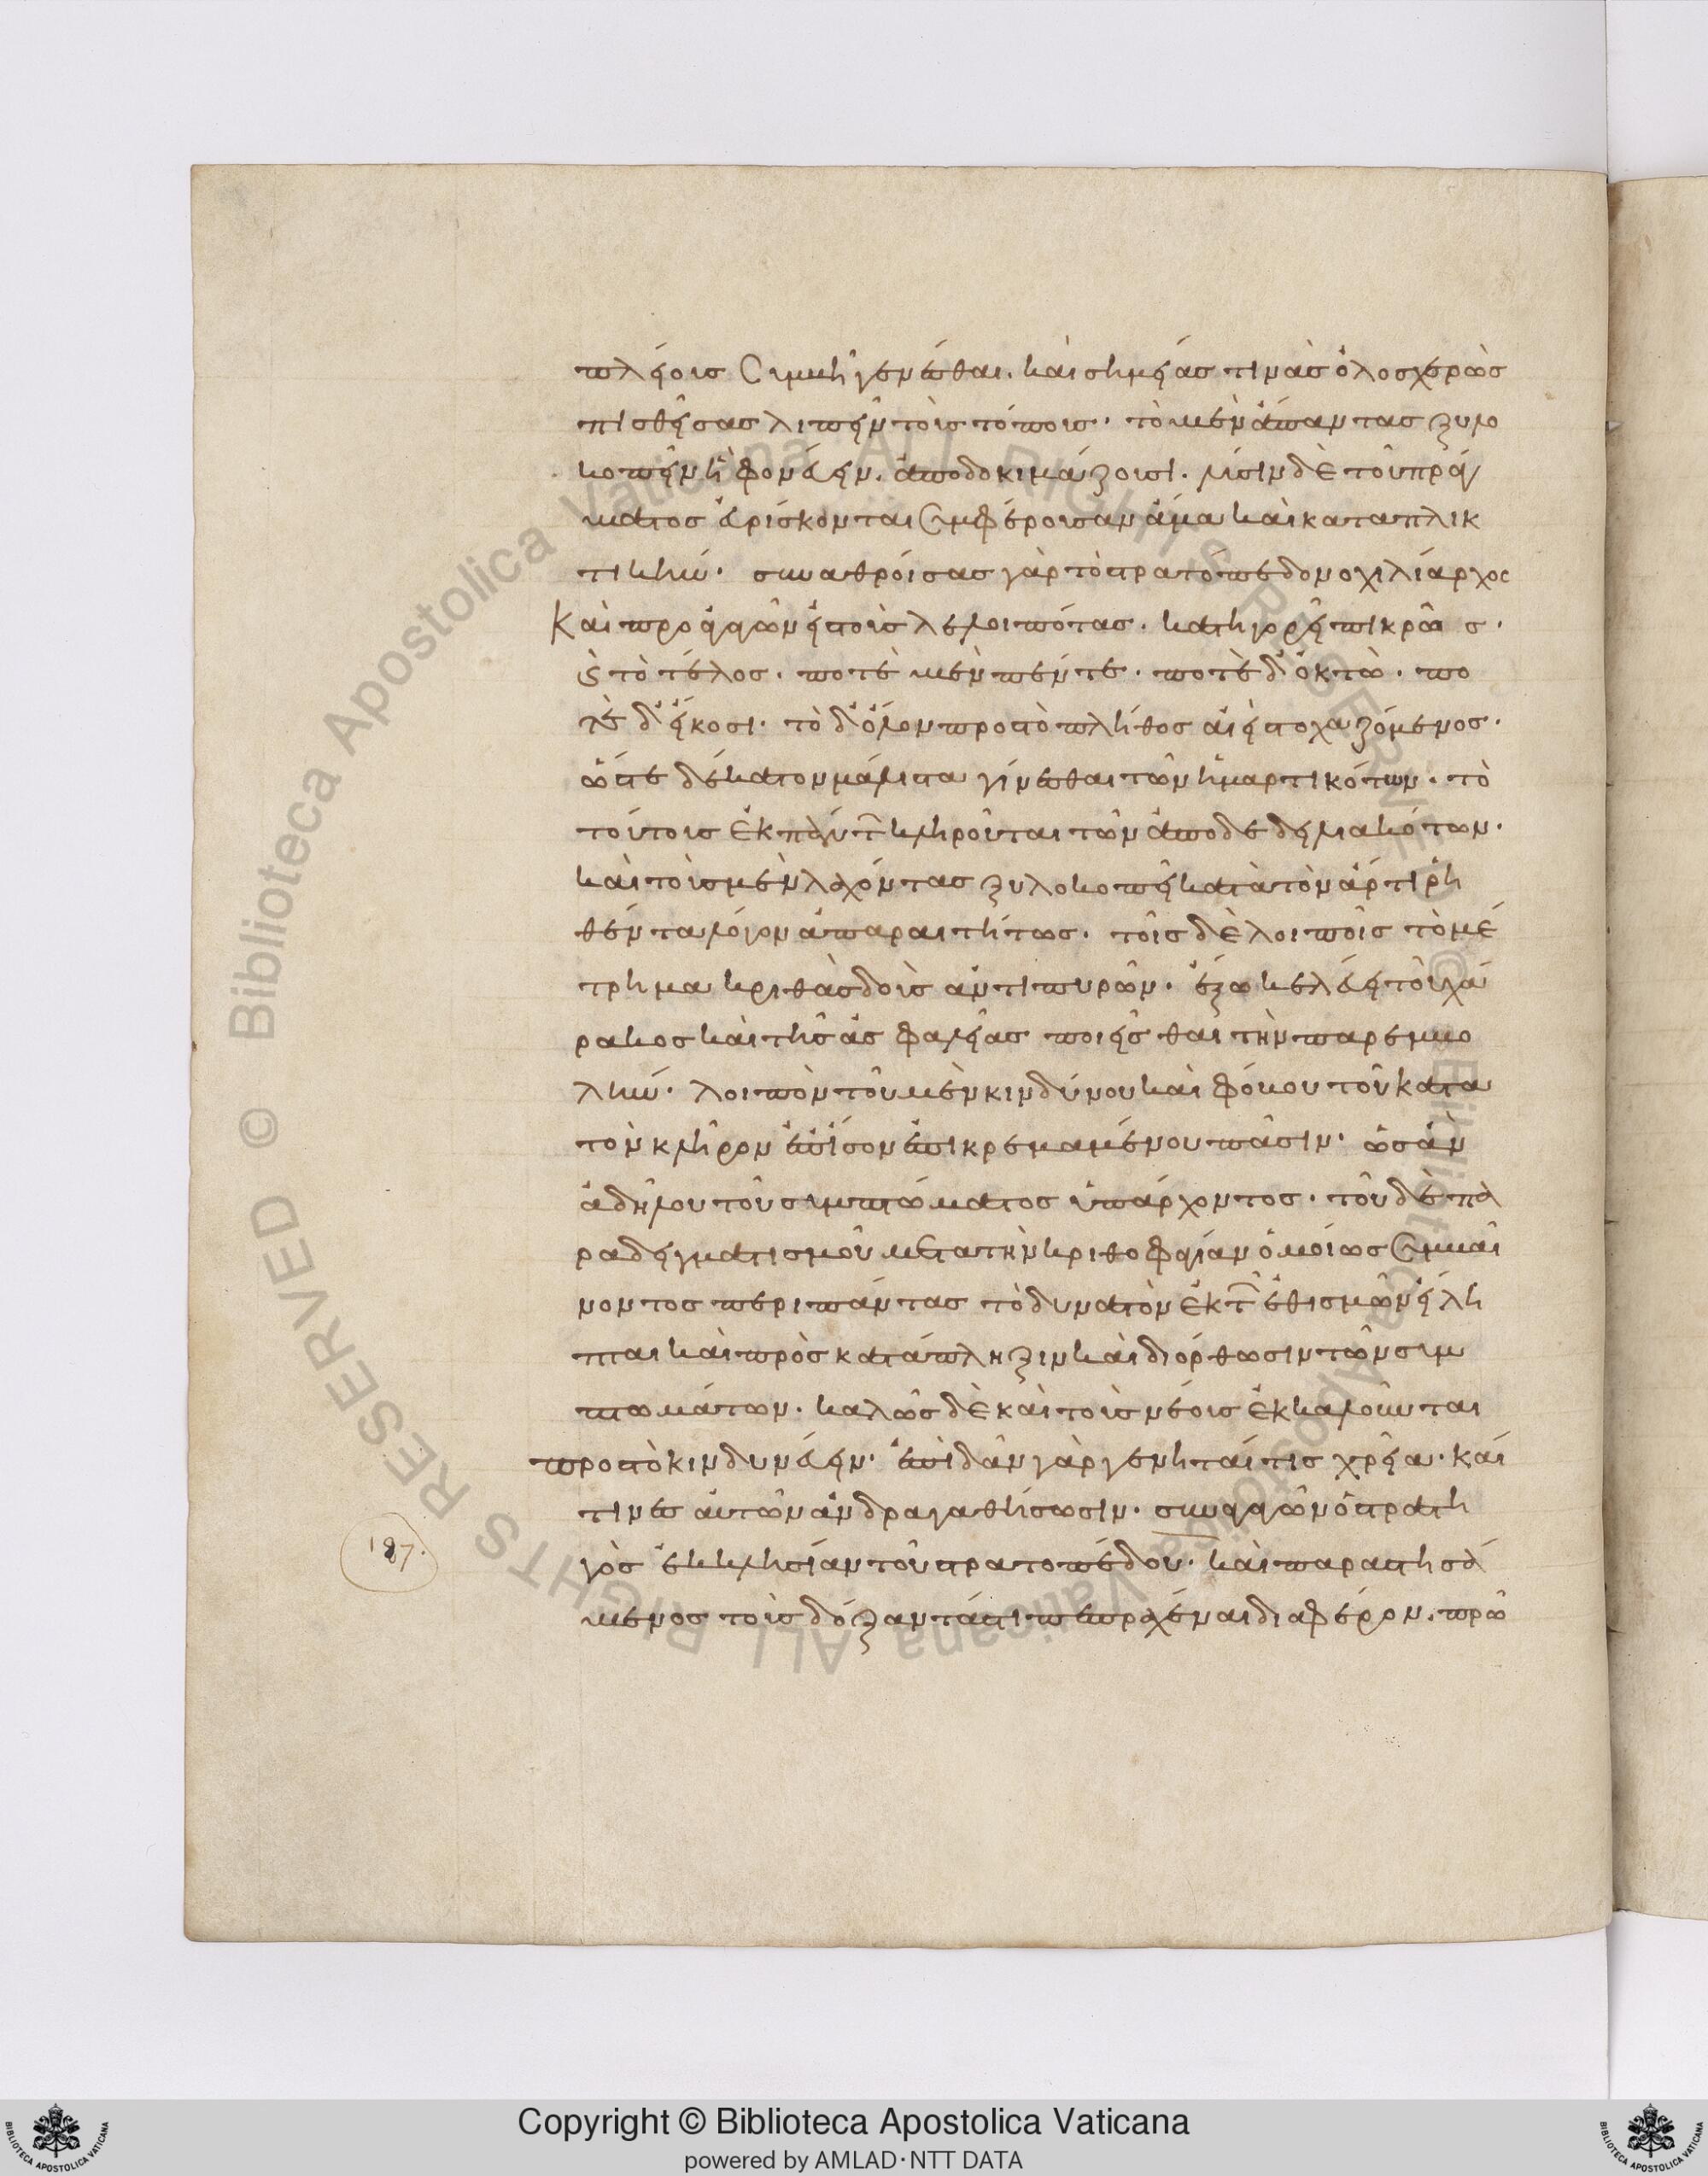 πλείους συμβῆ γενέσθαι. καὶ σημείας τινὰς ὁλοσχερῶς
πισθείσας λιπεῖν τοὺς τόπους. τὸ μὲν ἅπαντας ξυλο
κοπεῖν ἢ φονεύειν. ἀποδοκιμάζουσι. λύσιν δὲ τοῦ πράγ
ματος εὑρίσκονται συμφέρουσαν ἅμα καὶ καταπλικ
τικήν. συναθροίσας γὰρ τὸ στρατόπεδον ὁ χιλίαρχος
καὶ προαγαγὼν εἰς τοὺς λελοιπότας. κατηγορεῖ πικρῶς.
ἐς τὸ τέλος. ποτὲ μὲν πέντε. ποτὲ δ' ὀκτὼ. πο
τὲ δ' εἴκοσι. τὸ δ' ὅλον πρὸς τὸ πλῆθος αἰεὶ στοχαζόμενος.
ὥστε δέκατον μάλιστα γίνεσθαι τῶν ἡμαρτικότων. τὸ
τούτους ἐκ πάντ κληροῦται τῶν ἀποδεδειλιακότων.
καὶ τοὺς μὲν λαχόντας ξυλοκοπεῖ κατὰ τὸν ἄρτι ῥη
θέντα λόγον ἀπαραιτήτως. τοῖς δὲ λοιποῖς τὸ μέ
τρημα κριθὰς δοὺς ἀντὶ πυρῶν. ἔξω κελεύει τοῦ χά
ρακος καὶ τῆς ἀσφαλείας ποιεῖσθαι τὴν παρεμβο
λήν. λοιπὸν τοῦ μὲν κινδύνου καὶ φόβου τοῦ κατα
τὸν κλῆρον ἐπ' ἴσον ἐπικρεμαμένου πᾶσιν. ὡς ἂν
ἀδήλου τοῦ συμπτώματος ὑπάρχοντος. τοῦ δὲ πα
ραδειγματισμοῦ μετα τὴν κριθοφαγίαν ὁμοίως συμβαί
νοντος περι πάντας τὸ δυνατὸν ἐκ τ ἐθισμῶν εἴλη
πται καὶ πρὸς κατάπληξιν καὶ διόρθωσιν τῶν συμ
πτωμάτων. καλῶς δὲ καὶ τοὺς νέους ἐκκαλοῦνται
πρὸς τὸ κινδυνεύειν. ἐπειδὰν γὰρ γένηταί τις χρεία. καί
τινες αὐτῶν ἀνδραγαθήσωσιν. συναγαγὼν ὁ στρατη
γὸς ἐκκλησίαν τοῦ στρατοπέδου. καὶ παραστησά
μενος τοὺς δόξαντάς τι πεπραχέναι διαφέρον. πρῶ
187.
Copyright © Biblioteca Apostolica Vaticana
powered by AMLAD·NTT DATA